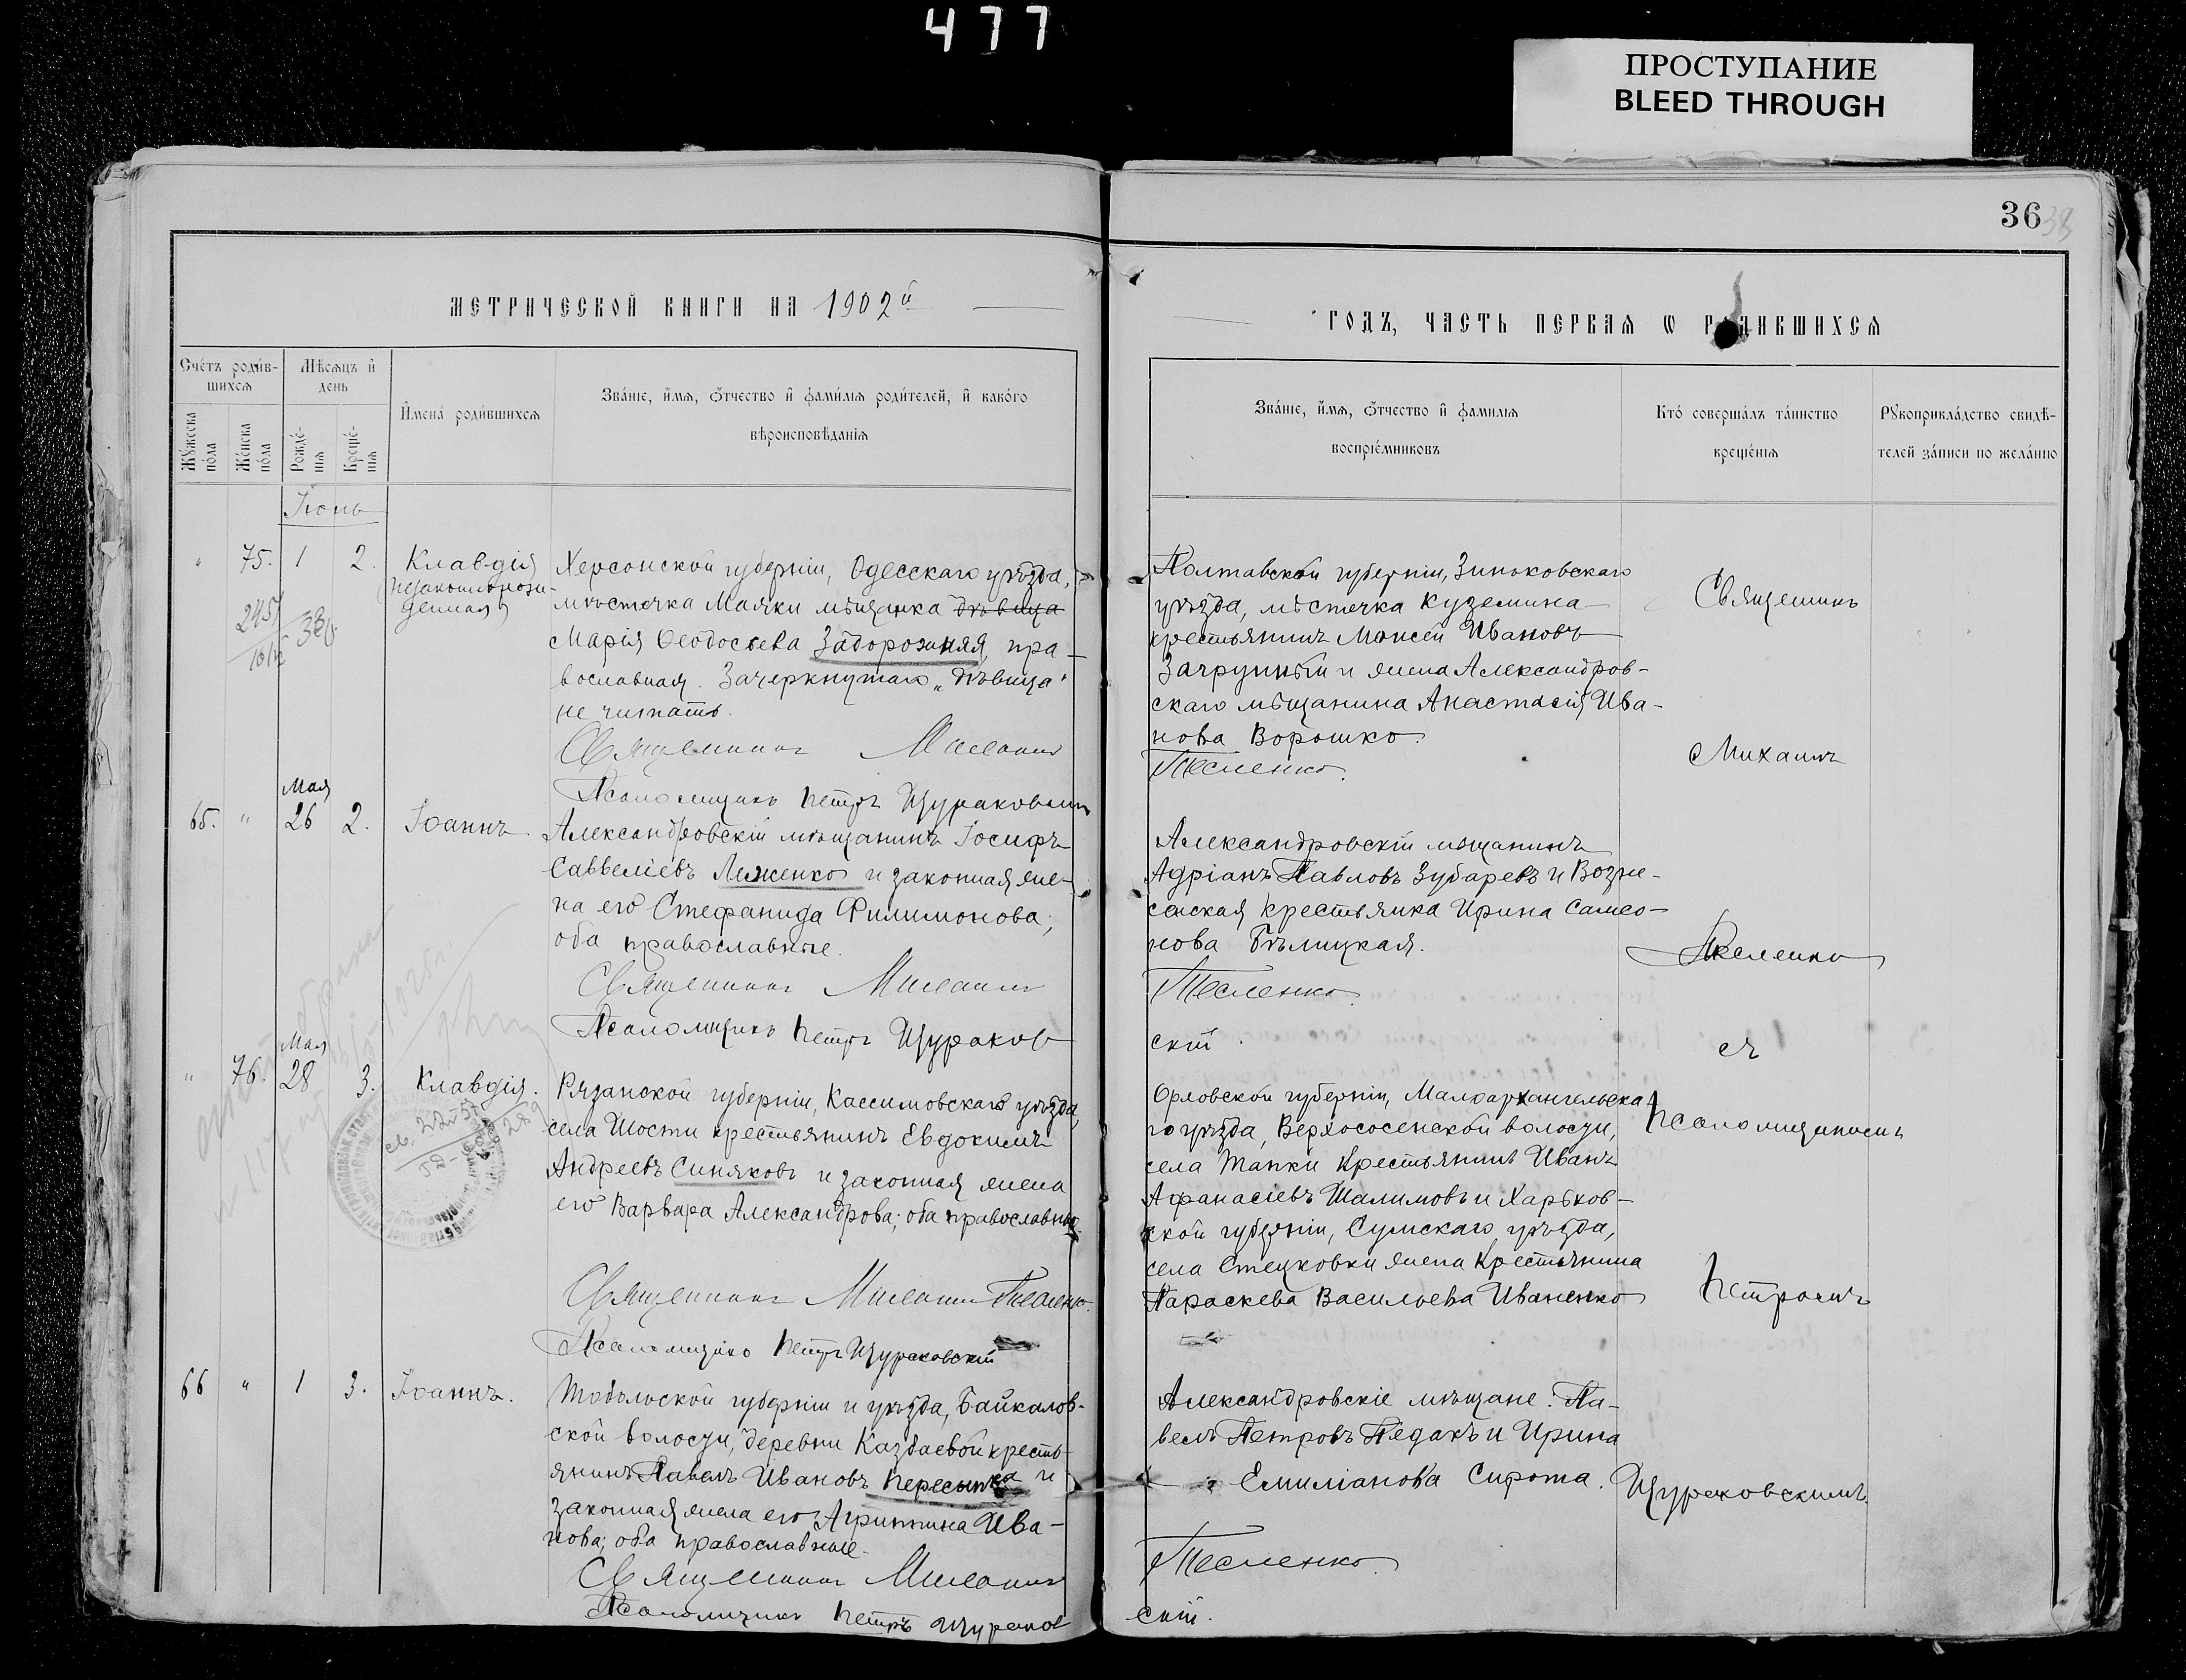 477
ПРОСТУПАНИЕ
BLEED THROUGH
36
МЕТРИЧЕСКОЙ КНИГИ НА 1902й
ГОДЪ, ЧАСТЬ ПЕРВАЯ Ѡ РОДИВШИХСЯ
Счетъ родив-
шихся
Мѣсяцъ и
день
Мужеска
пола
Женска
пола
Рожде-
нія
Креще-
нія
Имена родившихся
Званіе, имя, отчество и фамилія родителей, и какого
вѣроисповѣданія
Званіе, имя, отчество и фамилія
воспріемниковъ
Кто совершалъ таинство
крещенія
Рукоприкладство свидѣ-
телей записи по желанію
Іюнь
" 75. 1 2. Клавдія
(незаконнорож-
денная)
Херсонской губерніи, Одесскаго уѣзда,
мѣстечка Маяки мѣщанка дѣвица
Марія Ѳеодосьева Задорожняя, пра-
вославная. Зачеркнутаго „дѣвица"
не читать.
Священникъ Михаилъ
Тесленко.
Псаломщикъ Петръ Щураковскій
Полтавской губерніи, Зиньковскаго
уѣзда, мѣстечка Куземина
крестьянинъ Моисей Ивановъ
Загрунный и жена Александров-
скаго мѣщанина Анастасія Ива-
нова Ворошко.
Священникъ
Михаилъ
Мая
65. " 26 2. Іоаннъ.
Александровскій мѣщанинъ Іосифъ
Саввеліевъ Леженко и законная же-
на его Стефанида Филимонова;
оба православные.
Священникъ Михаилъ
Тесленко.
Псаломщикъ Петръ Щураков
скій.
Александровскій мѣщанинъ
Адріанъ Павловъ Зубаревъ и Возне-
сенская крестьянка Ирина Самсо-
нова Бѣлицкая.
Тесленко
съ
Мая
" 76. 28 3. Клавдія.
Рязанской губерніи, Кассимовскаго уѣзда,
села Шости крестьянинъ Евдокимъ
Андреевъ Синяковъ и законная жена
его Варвара Александрова; оба православные.
Священникъ Михаилъ Тесленко.
Псаломщикъ Петръ Щураковскій
Орловской губерніи, Малоархангельска-
го уѣзда, Верхососенской волости,
села Тапки крестьянинъ Иванъ
Афанасіевъ Шалимовъ и Харьков-
ской губерніи, Сумскаго уѣзда,
села Стецковки жена крестьянина
Параскева Васильева Иваненко
псаломщикомъ
Петромъ
66 " 1 3. Іоаннъ.
Тобольской губерніи и уѣзда, Байкалов-
ской волости, деревни Казбаевой кресть-
янинъ Павелъ Ивановъ Пересыпка и
законная жена его Агриппина Ива-
нова; оба православные.
Священникъ Михаилъ
Тесленко.
Псаломщикъ Петръ Щураков
скій.
Александровскіе мѣщане: Па-
велъ Петровъ Педакъ и Ирина
Емиліанова Сирота.
Щураковскимъ.